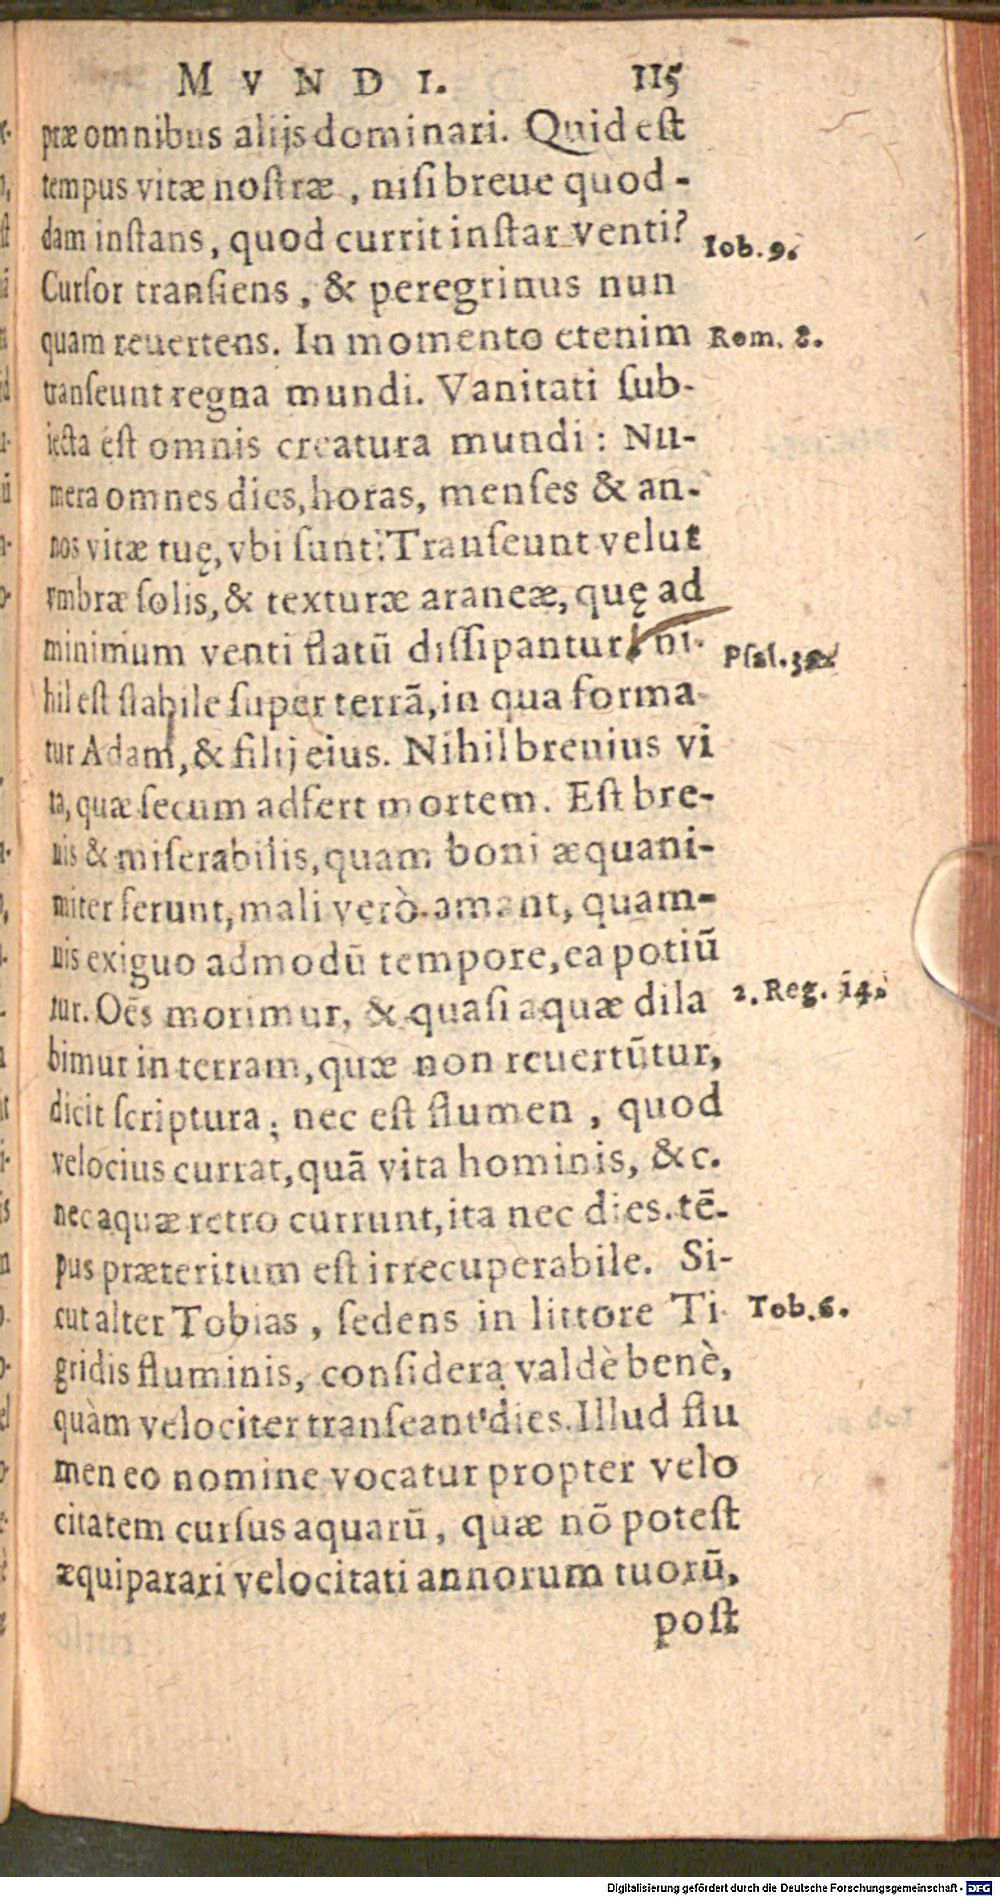 MVNDI. 115
præ omnibus alijs dominari. Quid est
tempus vitæ nostræ, nisi breue quod-
dam instans, quod currit instar venti?
Iob. 9.
Cursor transiens, & peregrinus nun
quam reuertens. In momento etenim
Rom. 8.
transeunt regna mundi. Vanitati sub-
iecta est omnis creatura mundi: Nu-
mera omnes dies, horas, menses & an-
nos vitæ tuę, vbi sunt? Transeunt velut
vmbræ solis, & texturæ araneæ, quę ad
minimum venti flatū dissipantur, ni-
Psal.
hil est stabile super terrā, in qua forma
tur Adam, & filij eius. Nihil breuius vi
ta, quæ secum adfert mortem. Est bre-
uis & miserabilis, quam boni æquani-
miter ferunt, mali verò amant, quam-
uis exiguo admodū tempore, ea potiū
tur. Oēs morimur, & quasi aquæ dila
2. Reg. 14.
bimur in terram, quæ non reuertūtur,
dicit scriptura; nec est flumen, quod
velocius currat, quā vita hominis, &c.
nec aquæ retro currunt, ita nec dies. tē-
pus præteritum est irrecuperabile. Si-
cut alter Tobias, sedens in littore Ti
Tob. 6.
gridis fluminis, considera valdè benè,
quàm velociter transeant dies. Illud flu
men eo nomine vocatur propter velo
citatem cursus aquarū, quæ nō potest
æquiparari velocitati annorum tuorū,
post
Digitalisierung gefördert durch die Deutsche Forschungsgemeinschaft - DFG